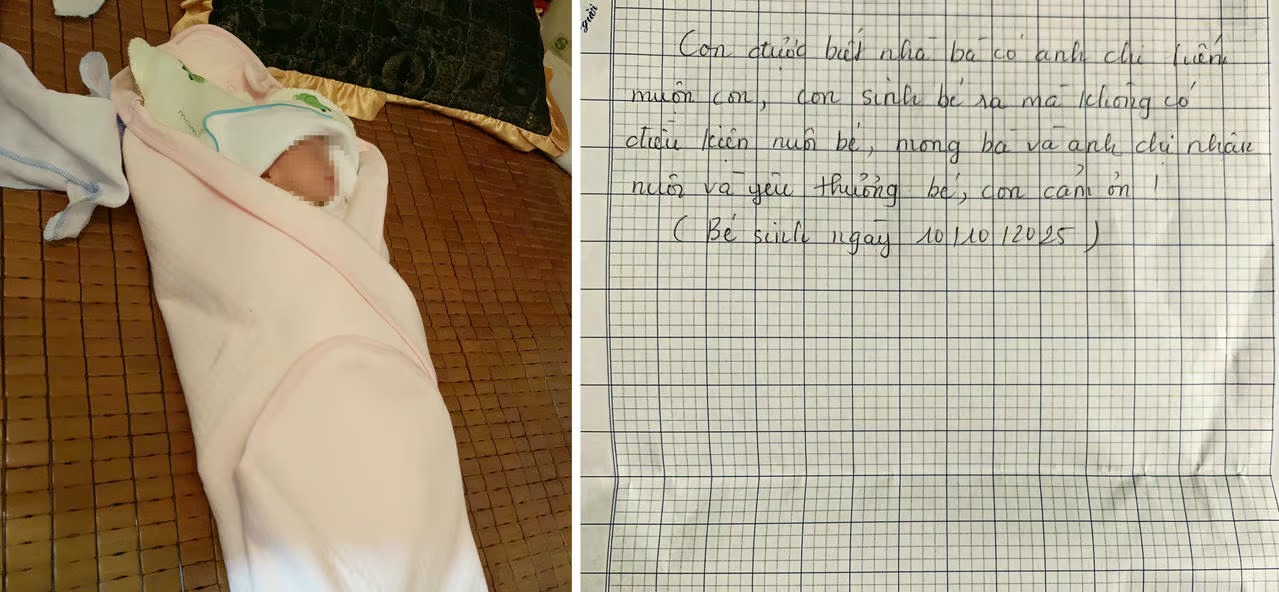 gười
Con được biết nhà bà có anh chị hiếm
muộn con, con sinh bé ra mà không có
điều kiện nuôi bé, mong bà và anh chị nhận
nuôi và yêu thương bé, con cảm ơn !
( Bé sinh ngày 10/10/2025 )